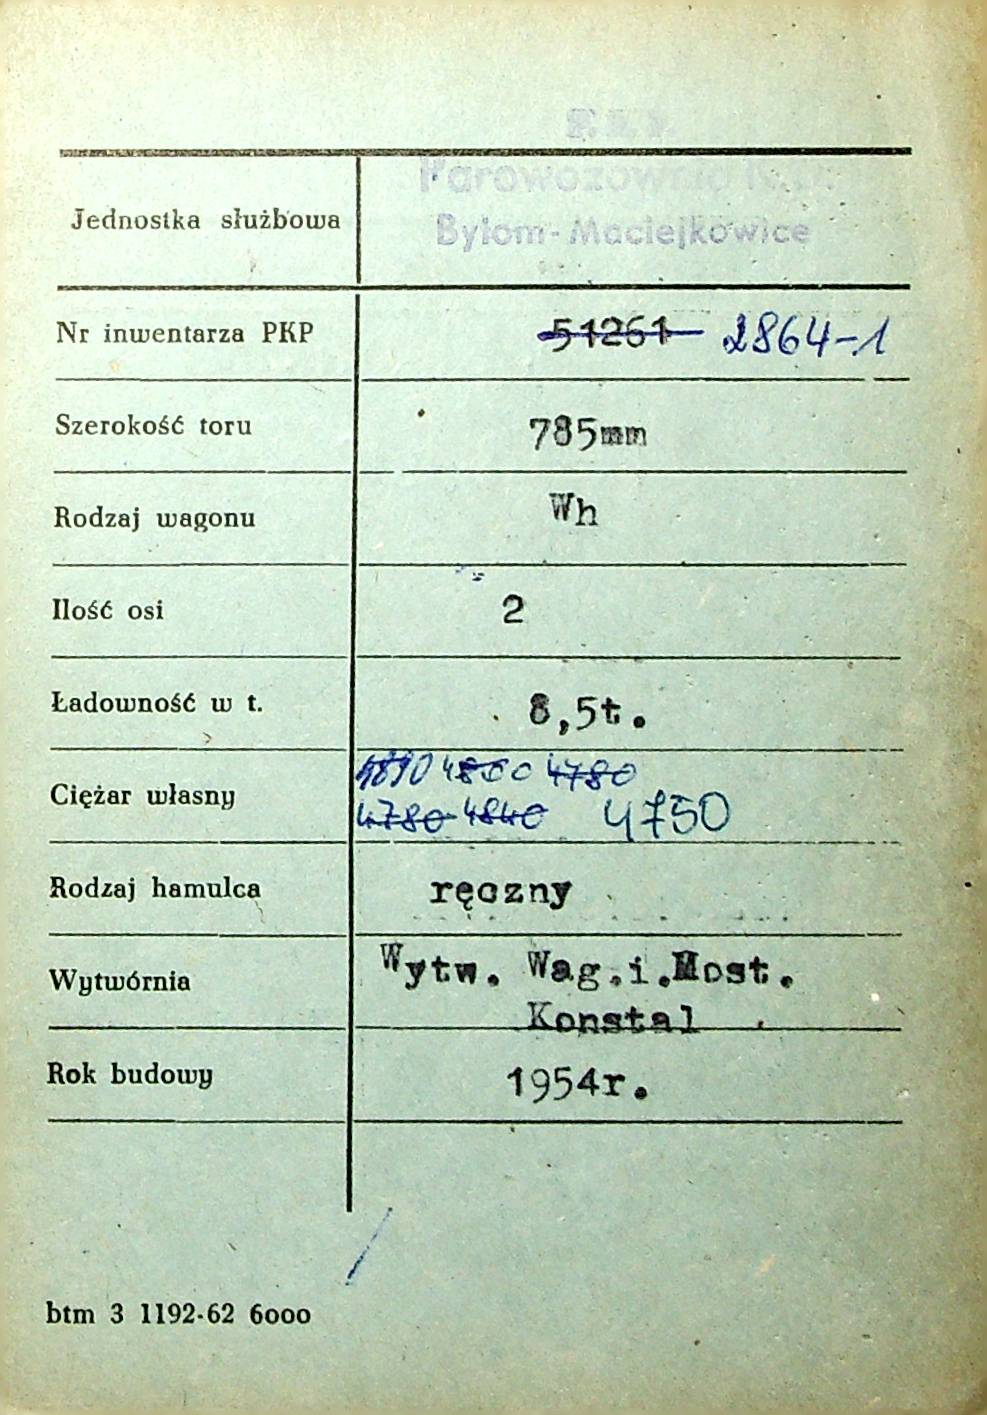 Parowozownia
Jednostka służbowa Bytom-Maciejkowice
Nr inwentarza PKP 51261 2864-1
Szerokość toru 785mm
Rodzaj wagonu Wh
Ilość osi 2
Ładowność w t. 8,5t.
4890 4800 4780
Ciężar własny 4780 4840 4750
Rodzaj hamulca ręczny
Wytwórnia Wytw. Wag.i.Most.
Konstal
Rok budowy 1954r.
btm 3 1192-62 6000